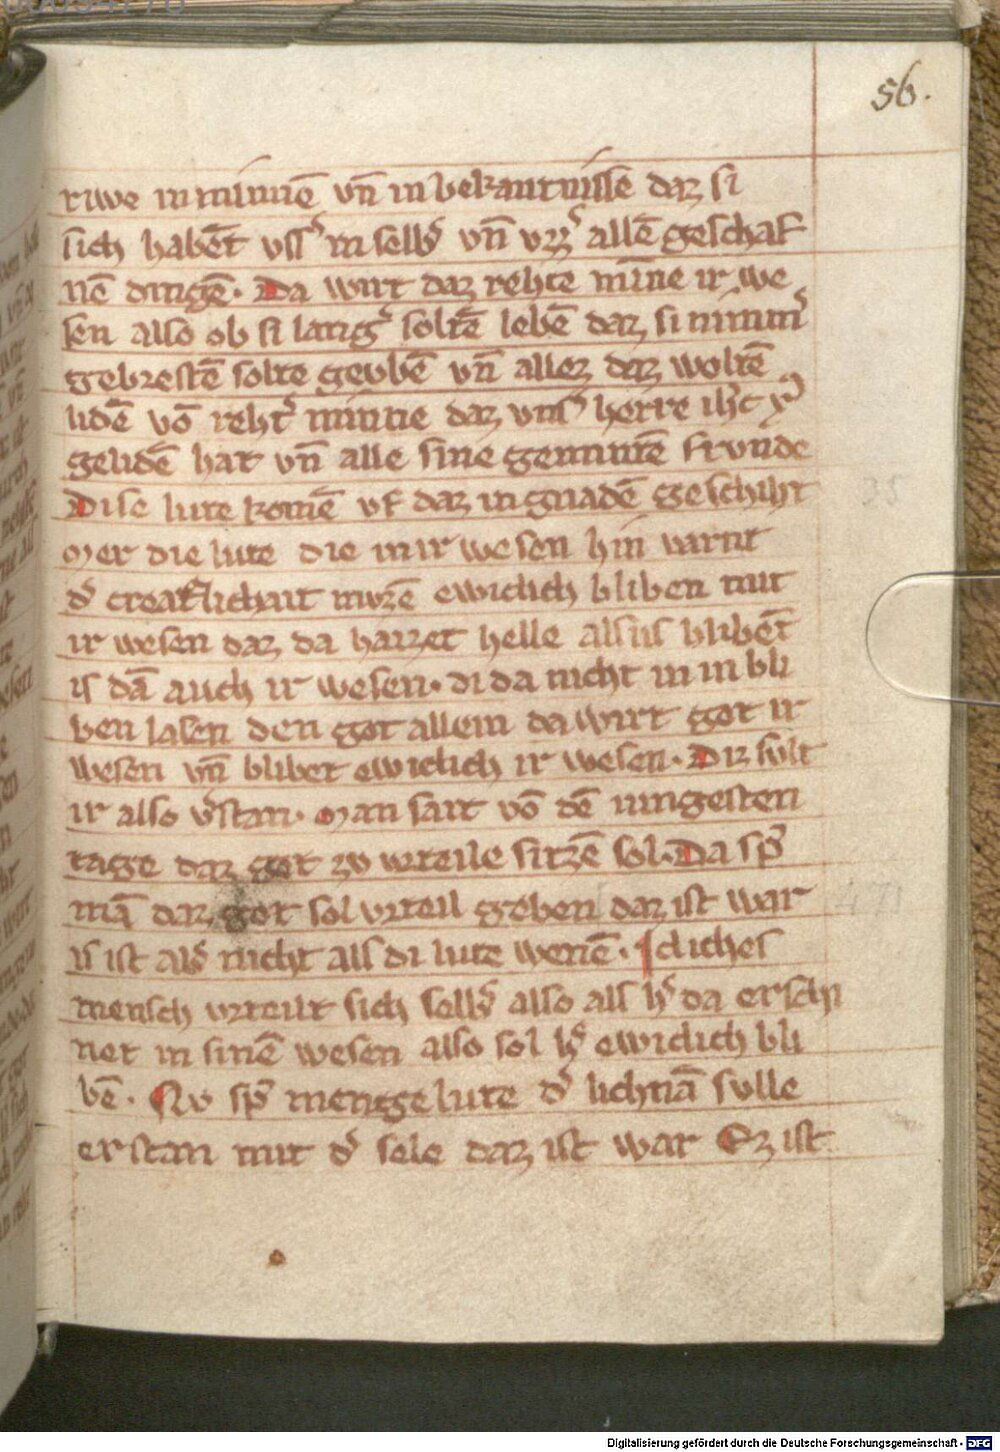 56.
riwe in minnē vn̄ in bekantnissē daz si
sich habēt vss' in selb' vn̄ vzz' allē geschaf
nē dingē. Da wirt daz rehte mīne ir we
sen also ob si lang' soltē lebē daz si nimm'
gebrestē solte geubē vn̄ allez daz woltē
lidē vō reht' minne daz vns' herre ih̄c xp̄
gelidē hat vn̄ alle sine gemintē frvnde
Dise lute komē vf daz in gnadē geschiht
Mer die lute die in ir wesen hin varnt
d' creatlichait mvzē ewiclich bliben mit
ir wesen daz da haizet helle als iis blibēt
is dā auch ir wesen. di da nicht in in bli
ben lasen den got allein da wirt got ir
wesen vn̄ blibet ewiclich ir wesen. Diz svlt
ir also v'stan. Man sait vō dē iungesten
tage daz got zv vrteile sitzē sol. Da sp̄'
mā daz got sol vrteil geben daz ist war
is ist ab' nicht als di lute wenē. Icliches
mensch vrteilt sich selb' also als h' da erschi
net in sinē wesen also sol h' ewiclich bli
bē. Nv sp̄' menge lute d' lichnā sulle
erstan mit d' sele daz ist war Ez ist
Digitalisierung gefördert durch die Deutsche Forschungsgemeinschaft - DFG